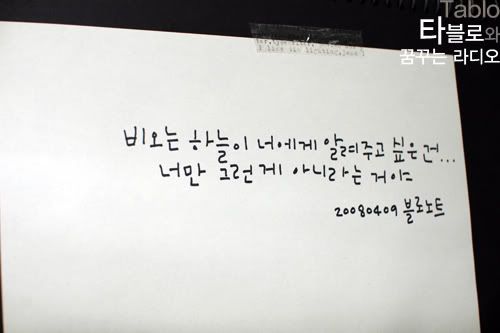 Tablo
타블로와
꿈꾸는 라디오
비오는 하늘이 너에게 알려주고 싶은 건...
너만 그런게 아니라는 거야
20080409 블로노트